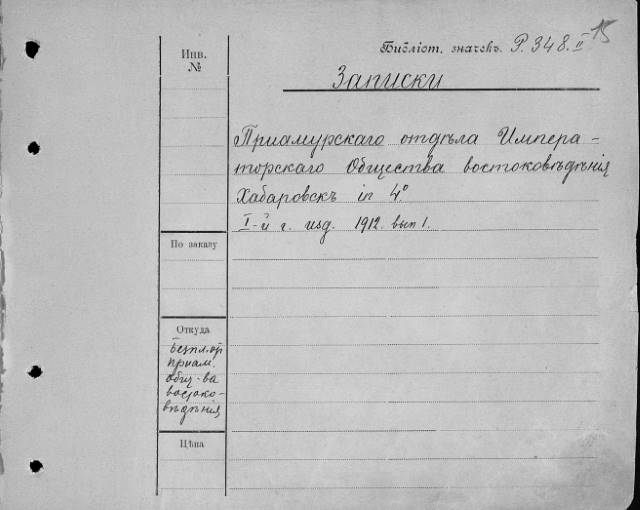 Библіот. значекъ. Р. 348. II 15
Инв.
№
Записки
Приамурскаго отдѣла Импера-
торскаго Общества востоковѣдѣнія
Хабаровскъ in 4º
I-й г. изд. 1912. вып 1.
По заказу
Откуда
Безпл. от
приам.
общ-ва
востоко-
вѣдѣнія
Цѣна